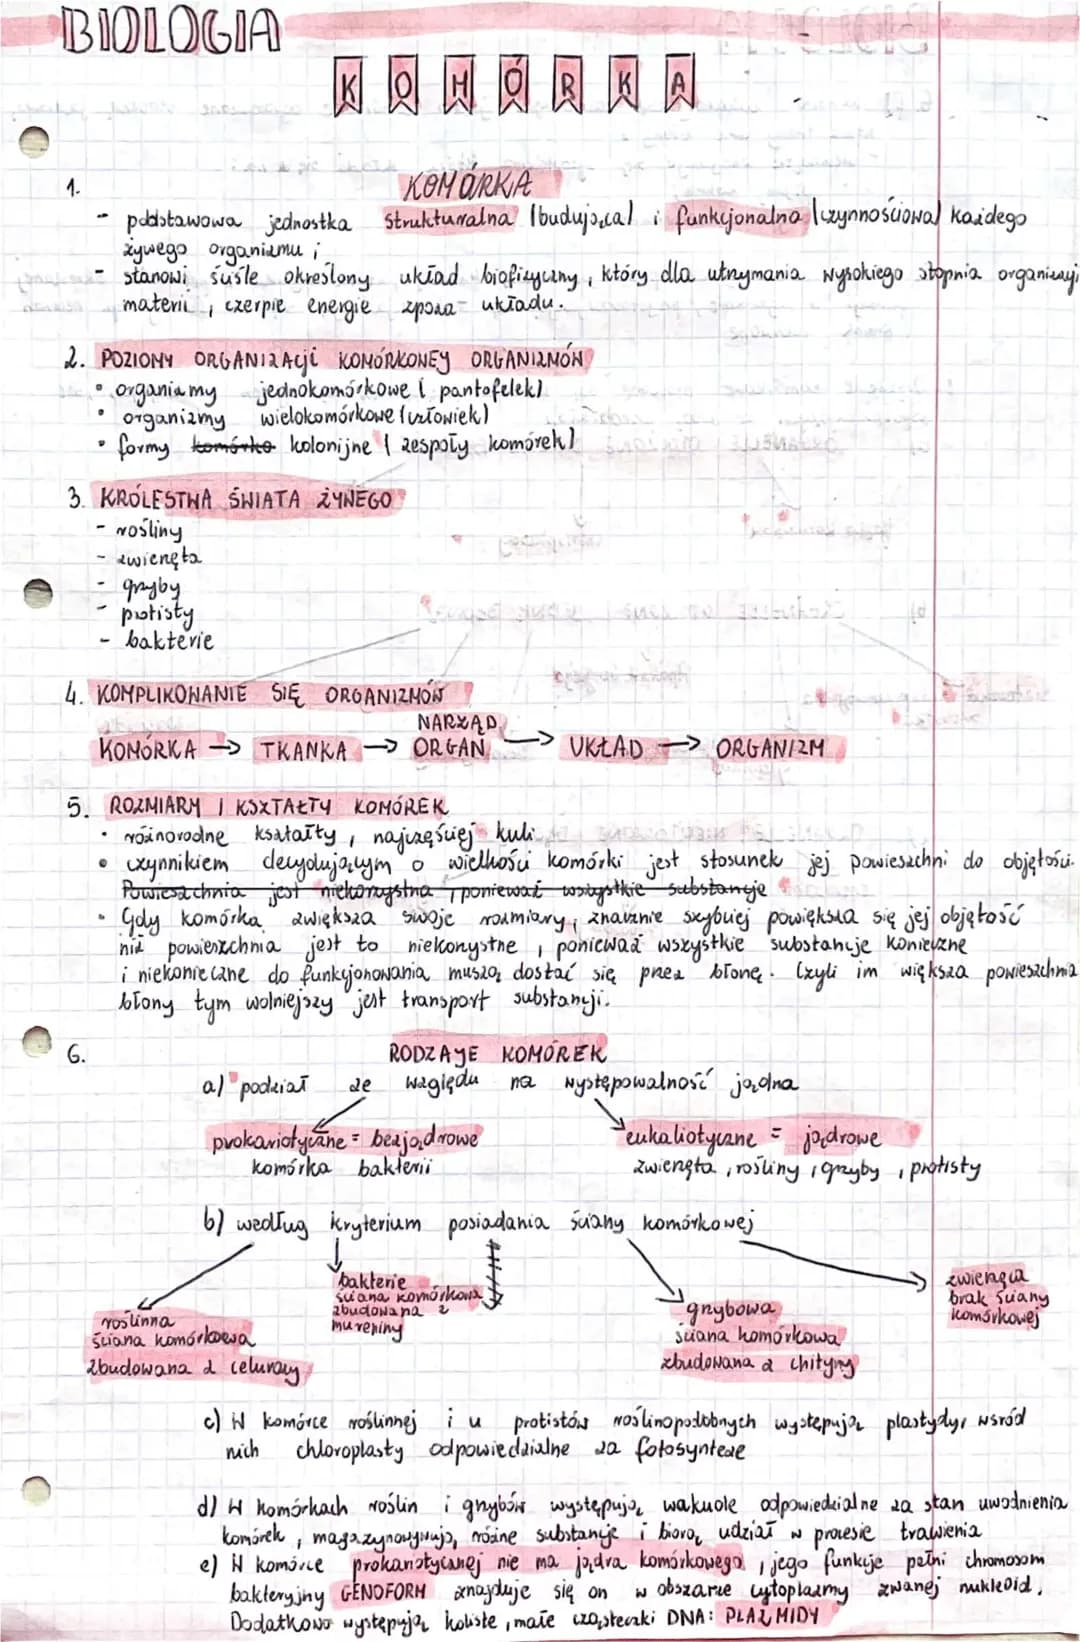 BIOLOGIA
KOMÓRKA
1. KOMÓRKA
- podstawowa jednostka strukturalna (budująca) i funkcjonalna (czynnościowa) każdego
żywego organizmu;
- stanowi ściśle określony układ biofizyczny, który dla utrzymania wysokiego stopnia organizacji
materii, czerpie energie spoza układu.
2. POZIOMY ORGANIZACJI KOMÓRKOWEJ ORGANIZMÓW
• organizmy jednokomórkowe (pantofelek)
• organizmy wielokomórkowe (człowiek)
• formy komórko kolonijne (zespoły komórek)
3. KRÓLESTWA ŚWIATA ŻYWEGO
- rośliny
- zwierzęta
- grzyby
- protisty
- bakterie
4. KOMPLIKOWANIE SIĘ ORGANIZMÓW
NARZĄD
KOMÓRKA → TKANKA → ORGAN → UKŁAD → ORGANIZM
5. ROZMIARY I KSZTAŁTY KOMÓREK
• różnorodne kształty, najczęściej kuli
• czynnikiem decydującym o wielkości komórki jest stosunek jej powieszchni do objętości.
Powieszchnia jest niekorzystna, ponieważ wszystkie substancje
• Gdy komórka zwiększa swoje rozmiary, znacznie szybciej powiększa się jej objętość
niż powierzchnia jest to niekorzystne, ponieważ wszystkie substancje konieczne
i niekonieczne do funkcjonowania muszą dostać się przez błonę. Czyli im większa powieszchnia
błony tym wolniejszy jest transport substancji.
6. RODZAJE KOMÓREK
a) podział ze względu na występowalność jądra
prokariotyczne = bezjądrowe
komórka bakterii
eukaliotyczne = jądrowe
zwierzęta, rośliny, grzyby, protisty
b) według kryterium posiadania ściany komórkowej
roślinna
ściana komórkowa
zbudowana z celurozy
bakterie
ściana komórkowa
zbudowana z
mureiny
grzybowa
ściana komórkowa
zbudowana z chityny
zwierzęca
brak ściany
komórkowej
c) W komórce roślinnej i u protistów roślinopodobnych występują plastydy, wsród
nich chloroplasty odpowiedzialne za fotosynteze
d) W komórkach roślin i grzybów występują wakuole odpowiedzialne za stan uwodnienia
komórek, magazynowywują różne substancje i biorą udział w procesie trawienia
e) W komórce prokariotycznej nie ma jądra komórkowego, jego funkcje pełni chromosom
bakteryjny GENOFORM znajduje się on w obszarze cytoplazmy zwanej nukleoid.
Dodatkowo występują koliste, małe cząsteczki DNA: PLAZMIDY